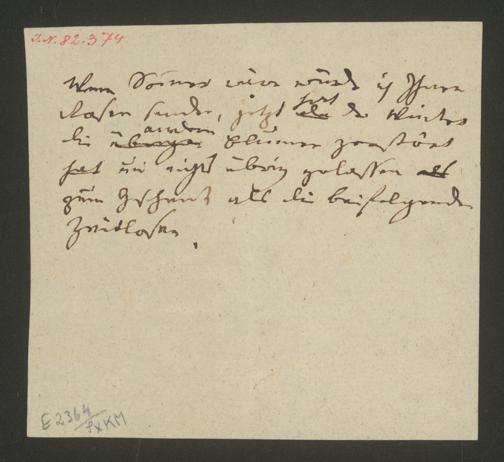 I.N. 82.374
Wenn Somer wäre würde ich Ihnen
Rosen senden, jetzt hat der Winter
die andern Blumen zerstört
hat und nichts übrig gelassen als
zum Geschenk als die beifolgenden
Zeitlosen.
E 2364